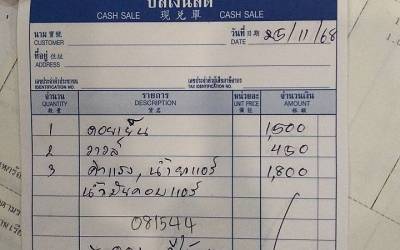 บิลเงินสด
CASH SALE 現兌單 CASH SALE
นาม 寶號
CUSTOMER
วันที่ 日期
DATE 25/11/68
ที่อยู่ 住址
ADDRESS
เลขประจำตัวประชาชน
IDENTIFICATION NO.
เลขประจำตัวผู้เสียภาษีอากร
TAX IDENTIFICATION NO.
จำนวน
QUANTITY
數量
รายการ
DESCRIPTION
貨名
หน่วยละ
UNIT PRICE
จำนวนเงิน
AMOUNT
1 คอยเย็น 1,500
2 วาวล์ 450
3 ค่าแรง, น้ำยาแอร์ 1,800
น้ำมันคอมแอร์
081544